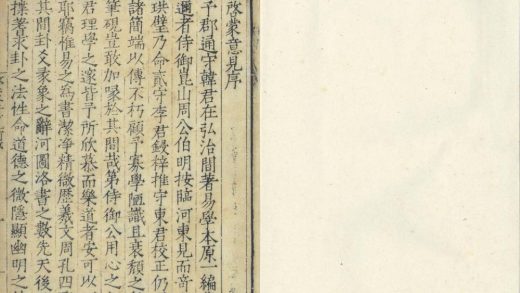 啓蒙意見序
予郡通守韓君在弘治間著易學本原一編
邇者侍御崑山周公伯明按臨河東見而奇
珙璧乃命貳守李君録梓推守東君校正仍
諸簡端以傳不朽顧予寡學陋識且衰頽之
筆硯豈敢加喙於其間哉第侍御公用心之
君理學之邃皆予所欣慕而樂道者安可以
耶竊惟易之為書潔淨精微歷羲文周孔四
其間卦爻彖象之辭河圖洛書之數先天後
揲蓍求卦之法性命道德之微隱顯幽明之